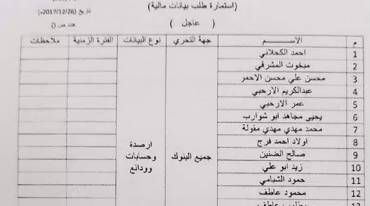 (استمارة طلب بيانات مالية)
تاريخ (2017/12/26م)
عدد ص ()
( عاجل )
م الاســـم جهة التحري نوع البيانات الفترة الزمنية ملاحظات
1 احمد الكحلاني
2 مبخوت المشرقي
3 محسن علي محسن الاحمر
4 عبدالكريم الارحبي
5 عمر الارحبي
6 يحيى مجاهد ابو شوارب
7 محمد مهدي مهدي مقولة
8 اولاد احمد فرج
9 صالح الضنين
10 زيد ابو علي
11 حمود الشامي
12 محمود عاطف
عاطف
جميع البنوك
ارصدة
وحسابات
وودائع